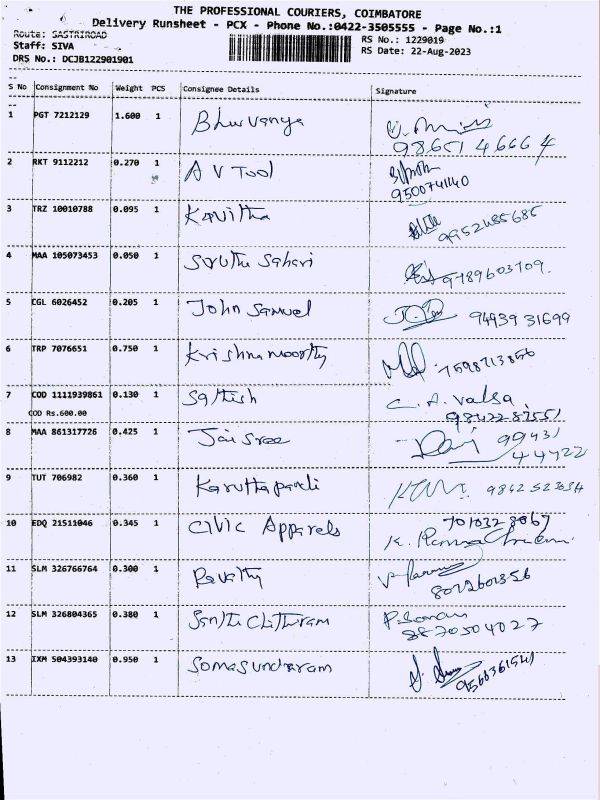 THE PROFESSIONAL COURIERS, COIMBATORE
Delivery Runsheet - PCX - Phone No.:0422-3505555 - Page No.:1
Route: SASTRIROAD
RS No.: 1229019
Staff: SIVA
RS Date: 22-Aug-2023
DRS No.: DCJB122901901
S No Consignment No Weight PCS Consignee Details Signature
1 PGT 7212129 1.600 1 Bhuvanya
98651 46664
2 RKT 9112212 0.270 1 A V Tool
9500741140
3 TRZ 10010788 0.095 1 Kavitha
9952485685
4 MAA 105073453 0.050 1 Sruthi Sahari
9789603709
5 CGL 6026452 0.205 1 John Samuel
94939 31699
6 TRP 7076651 0.750 1 Krishnamoorthy
7598713856
7 COD 1111939861 0.130 1 Sathish C. A. Valsa
COD Rs.600.00 9842287551
8 MAA 861317726 0.425 1 Jai Sree 99431
44722
9 TUT 706982 0.360 1 Karuthapandi 9842523634
10 EDQ 21511046 0.345 1 Civic Apparels 7010328067
11 SLM 326766764 0.300 1 Revathy
8072601356
12 SLM 326804365 0.380 1
8870504027
13 IXM 504393140 0.950 1 Somasundaram
9566361541